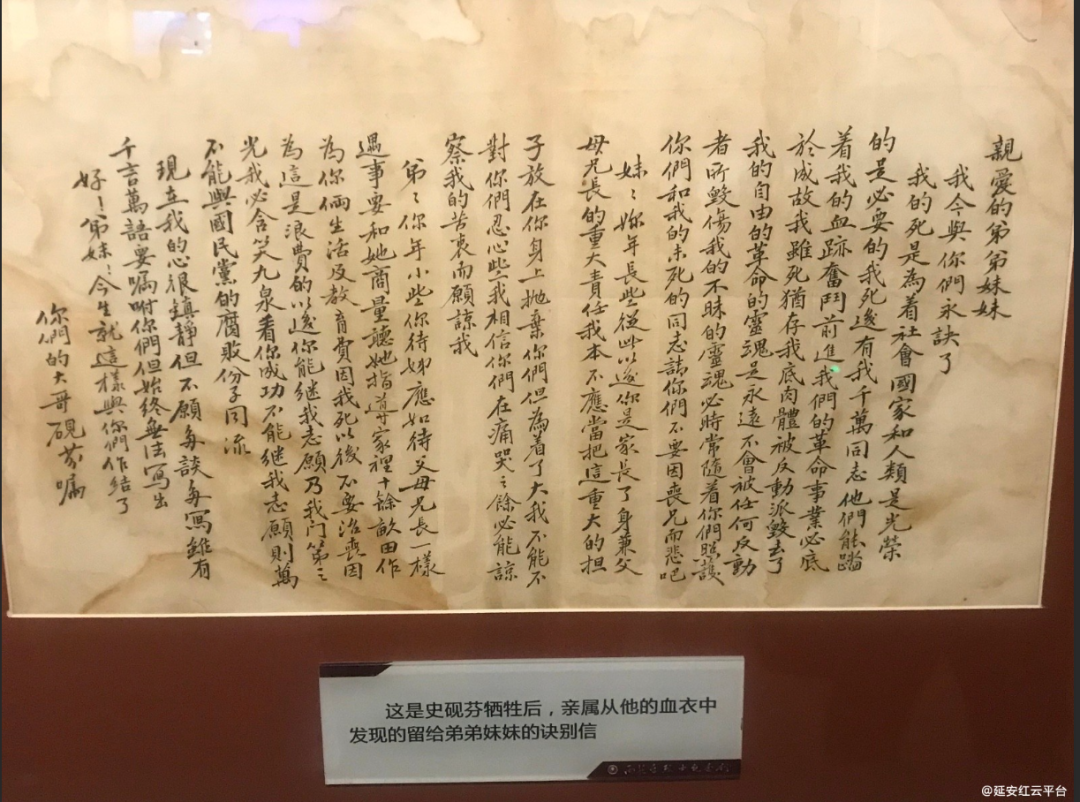 親愛的弟弟妹妹
我今與你們永訣了
我的死是為着社會國家和人類是光榮
的是必要的我死後有我千萬同志他們能踏
着我的血跡奮鬥前進我們的革命事業必底
於成故我雖死猶存我底肉體被反動派毀去了
我的自由的革命的靈魂是永遠不會被任何反動
者所毀傷我的不昧的靈魂必時常隨着你們照護
你們和我的未死的同志請你們不要因喪兄而悲吧
妹々妳年長些從此以後你是家長了身兼父
母兄長的重大責任我本不應當把這重大的担
子放在你身上抛棄你們但為着了大我不能不
對你們忍心些我相信你們在痛哭之餘必能諒
察我的苦衷而願諒我
弟々你年小些你待姊應如待父母兄長一樣
遇事要和她商量聽她指導家裡十餘畝田作
為你倆生活及教育費因我死以後不要治喪因
為這是浪費的以後你能继我志願乃我门第之
光我必含笑九泉看你成功不能继我志願則萬
不能與國民黨的腐敗份子同流
現在我的心很鎮靜但不願多談多寫雖有
千言萬語要嘱咐你們但始終無法寫出
好!弟妹!今生就這樣與你們作結了
你們的大哥硯芬嘱
这是史砚芬牺牲后，亲属从他的血衣中
发现的留给弟弟妹妹的诀别信
@延安红云平台